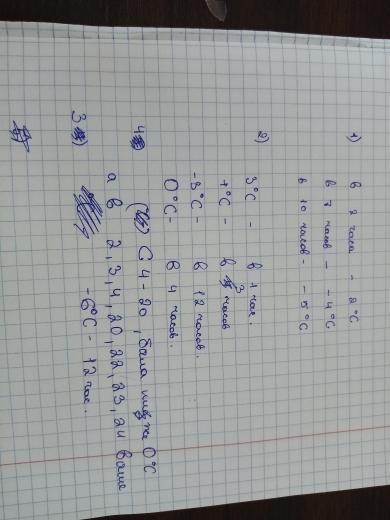 1) в 2 часа - 2°C
в 7 часов - - 4°C
в 10 часов - - 5°C
2) 3°C - в 1 час.
+°C - в 3 часов
-3°C - в 12 часов.
0°C - в 4 часов.
4) С 4-20, была ниже 0°C
а в 2,3,4,20,22,23,24 выше
3) -6°C - 12 час.